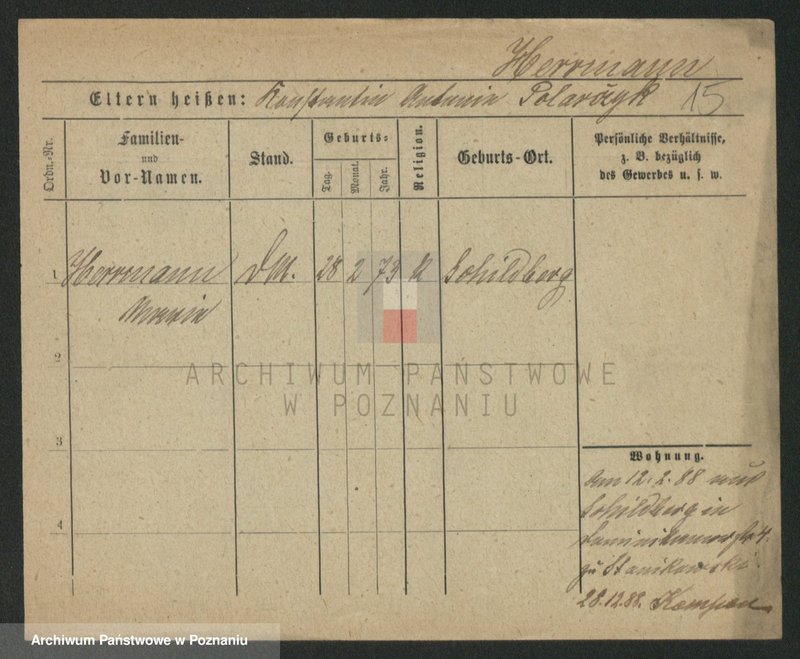 Herrmann
Eltern heißen: Konstantin Antonie Polarczyk 15
Ordn.-Nr.
Familien- und Vor-Namen.
Stand.
Geburts-
Tag. Monat. Jahr.
Religion.
Geburts-Ort.
Persönliche Verhältnisse,
z. B. bezüglich
des Gewerbes u. s. w.
1 Herrmann DM. 28 2 73 K Schildberg
2
ARCHIWUM PAŃSTWOWE
W POZNANIU
3
Wohnung.
Am 12. 2. 88 aus
Schildberg in
4
zu
28.12.88. Kempen
Archiwum Państwowe w Poznaniu